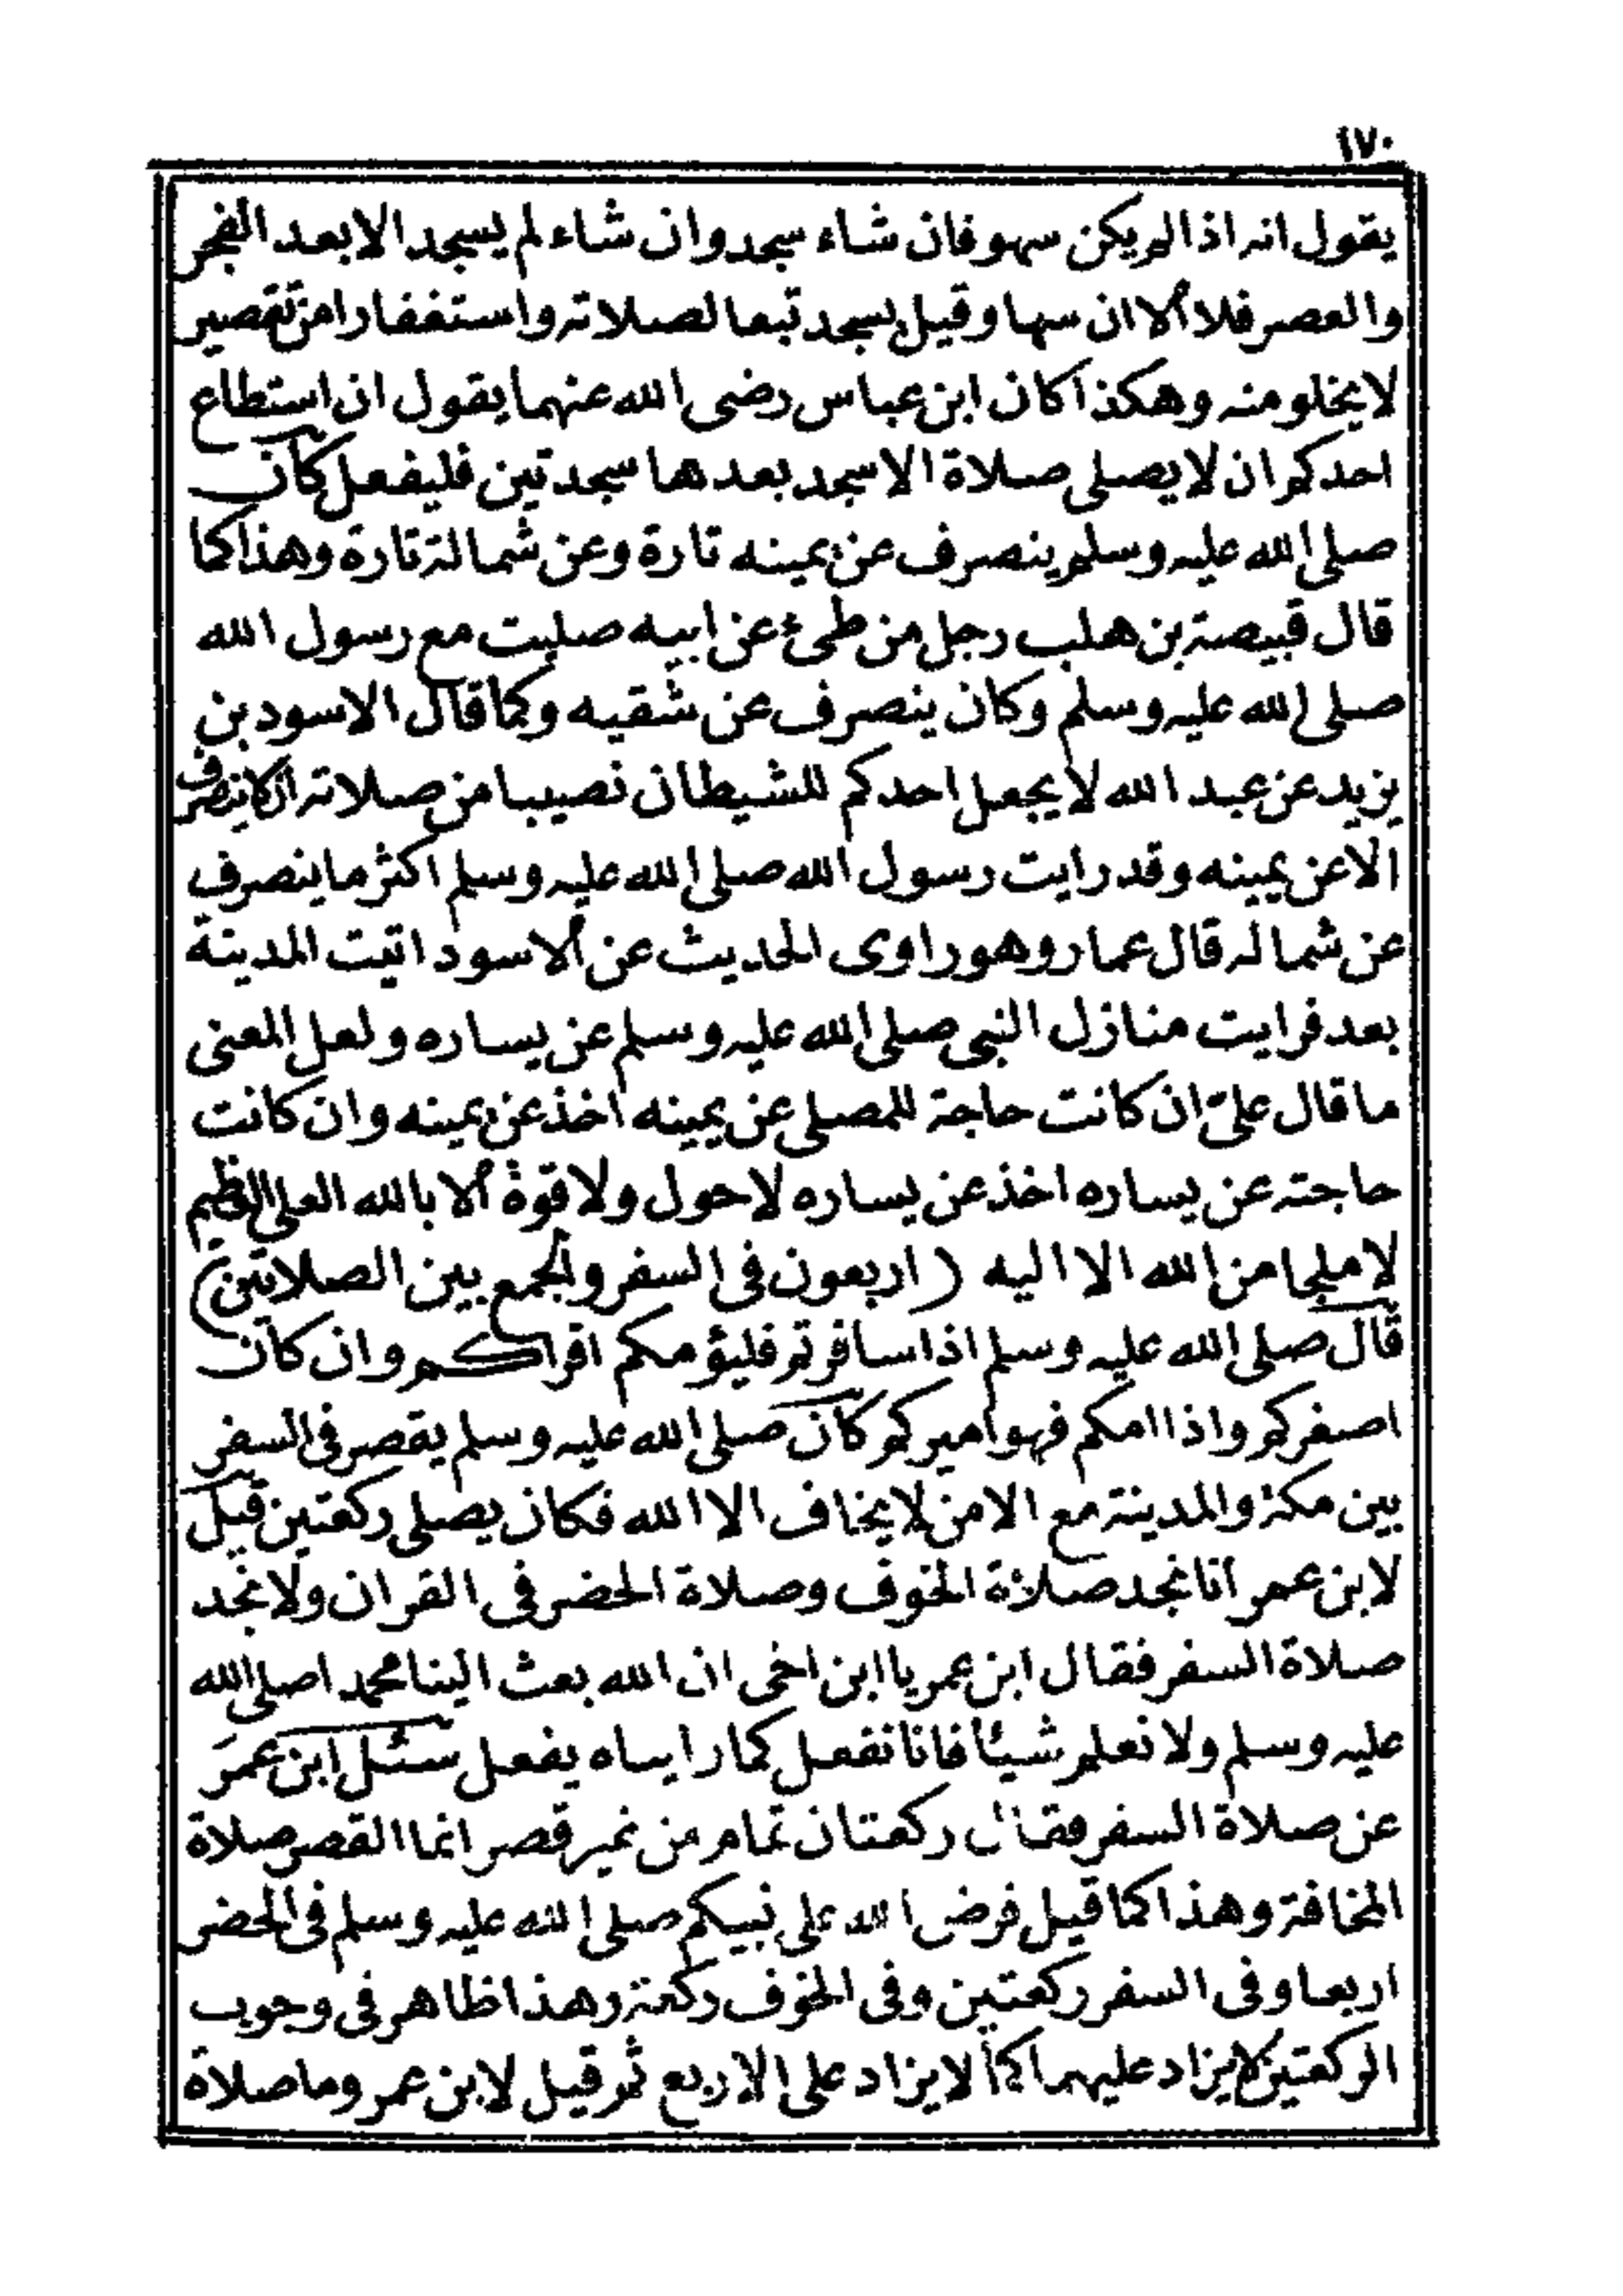 ١٧٠
يقول انه اذا لم يكن سهو فان شاء سجد وان شاء لم يسجد الا بعد الفجر
والعصر فلا الا ان سها وقيل يسجد تبعا لصلاته واستغفارا من تقصير
لا يخلو منه وهكذا كان ابن عباس رضى الله عنهما يقول ان استطاع
احدكم ان لا يصلى صلاة الا سجد بعدها سجدتين فليفعل كان
صلى الله عليه وسلم ينصرف عن يمينه تارة وعن شماله تارة وهذا كما
قال قبيصة بن هلب رجل من طىء عن ابيه صليت مع رسول الله
صلى الله عليه وسلم وكان ينصرف عن شقيه وكما قال الاسود بن
يزيد عن عبد الله لا يجعل احدكم للشيطان نصيبا من صلاته ان لا ينصرف
الا عن يمينه وقد رايت رسول الله صلى الله عليه وسلم اكثر ما ينصرف
عن شماله قال عمار وهو راوى الحديث عن الاسود اتيت المدينة
بعد فرايت منازل النبى صلى الله عليه وسلم عن يساره ولعل المعنى
ما قال على ان كانت حاجة للمصلى عن يمينه اخذ عن يمينه وان كانت
حاجته عن يساره اخذ عن يساره لا حول ولا قوة الا بالله العلى العظيم
لا ملجا من الله الا اليه (اربعون فى السفر والجمع بين الصلاتين)
قال صلى الله عليه وسلم اذا سافرتم فليؤمكم اقراكم وان كان
اصغركم واذا امكم فهو اميركم كان صلى الله عليه وسلم يقصر فى السفر
بين مكة والمدينة مع الامن لا يخاف الا الله فكان يصلى ركعتين قيل
لابن عمر انا نجد صلاة الخوف وصلاة الحضر فى القران ولا نجد
صلاة السفر فقال ابن عمر يا ابن اخى ان الله بعث الينا محمدا صلى الله
عليه وسلم ولا نعلم شيئا فانا نفعل كما رايناه يفعل سئل ابن عمر
عن صلاة السفر فقال ركعتان تمام من غير قصر انما القصر صلاة
المخافة وهذا كما قيل فرض الله على نبيكم صلى الله عليه وسلم فى الحضر
اربعا وفى السفر ركعتين وفى الخوف ركعة وهذا ظاهر فى وجوب
الركعتين لا يزاد عليهما كما لا يزاد على الاربع ثم قيل لابن عمر وما صلاة